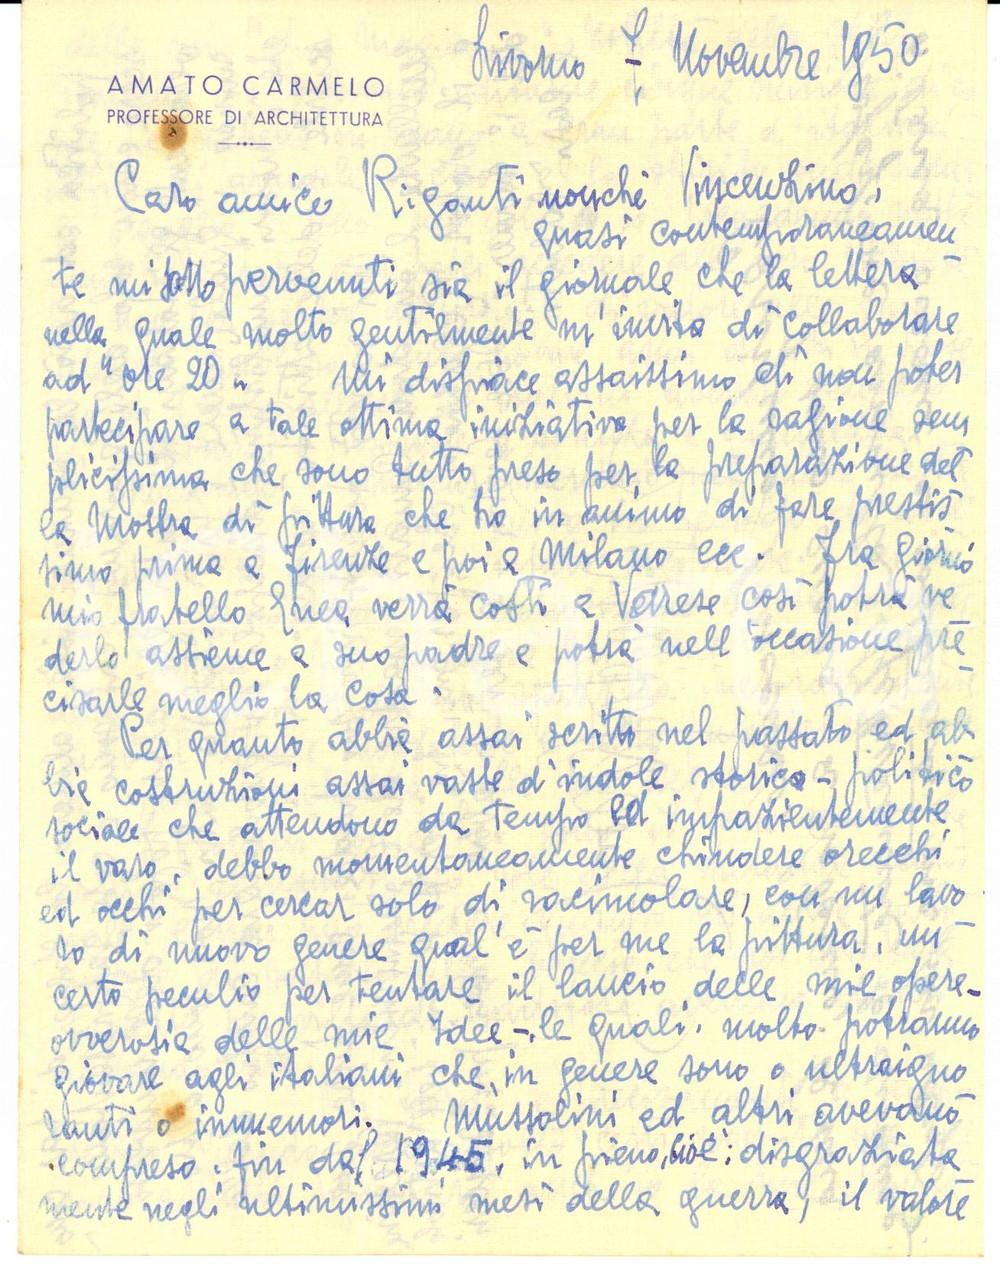 Livorno - Novembre 1950
AMATO CARMELO
PROFESSORE DI ARCHITETTURA
Caro amico Riganti nonchè Vincenzino,
quasi contemporaneamen
te mi sono pervenuti sia il giornale che la lettera
nella quale molto gentilmente m'invita di collaborare
ad "ore 20". Mi dispiace assaissimo di non poter
partecipare a tale ottima iniziativa per la ragione sem
plicissima che sono tutto preso per la preparazione del
la Mostra di pittura che ho in animo di fare prestis
simo prima a Firenze e poi a Milano ecc. Fra giorni
mio fratello Enea verrà costì a Varese così potrà ve
derlo assieme a suo padre e potrà nell'occasione pre
cisarle meglio la cosa.
Per quanto abbia assai scritto nel passato ed ab
bia costruzioni assai vaste d'indole storico-politico
sociale che attendono da tempo ed impazientemente
il varo, debbo momentaneamente chiudere orecchi
ed occhi per cercar solo di racimolare, con un lavo
ro di nuovo genere qual'è per me la pittura, un
certo peculio per tentare il lancio delle mie opere-
ovverosia delle mie Idee-le quali, molto potranno
giovare agli italiani che, in genere sono o ultraigno
ranti o immemori. Mussolini ed altri avevano
compreso, fin dal 1945, in pieno, cioè: disgraziata
mente negli ultimissimi mesi della guerra, il valore